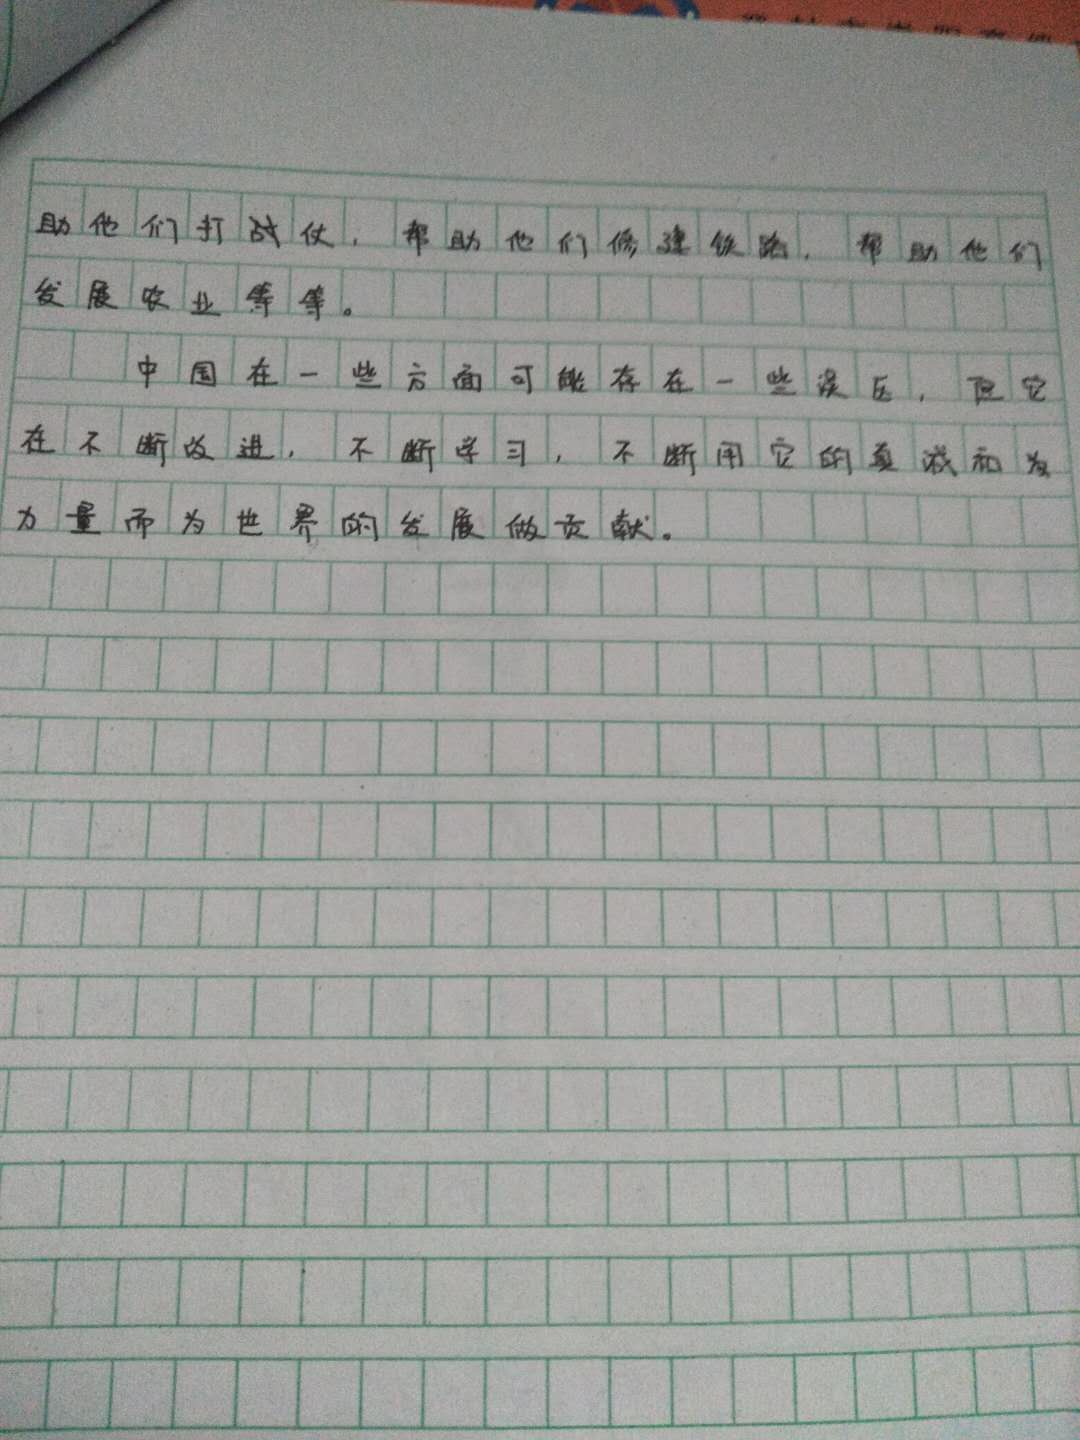 助他们打战仗，帮助他们修建铁路，帮助他们
发展农业等等。
中国在一些方面可能存在一些误区，但它
在不断改进，不断学习，不断用它的真诚和为
力量而为世界的发展做贡献。